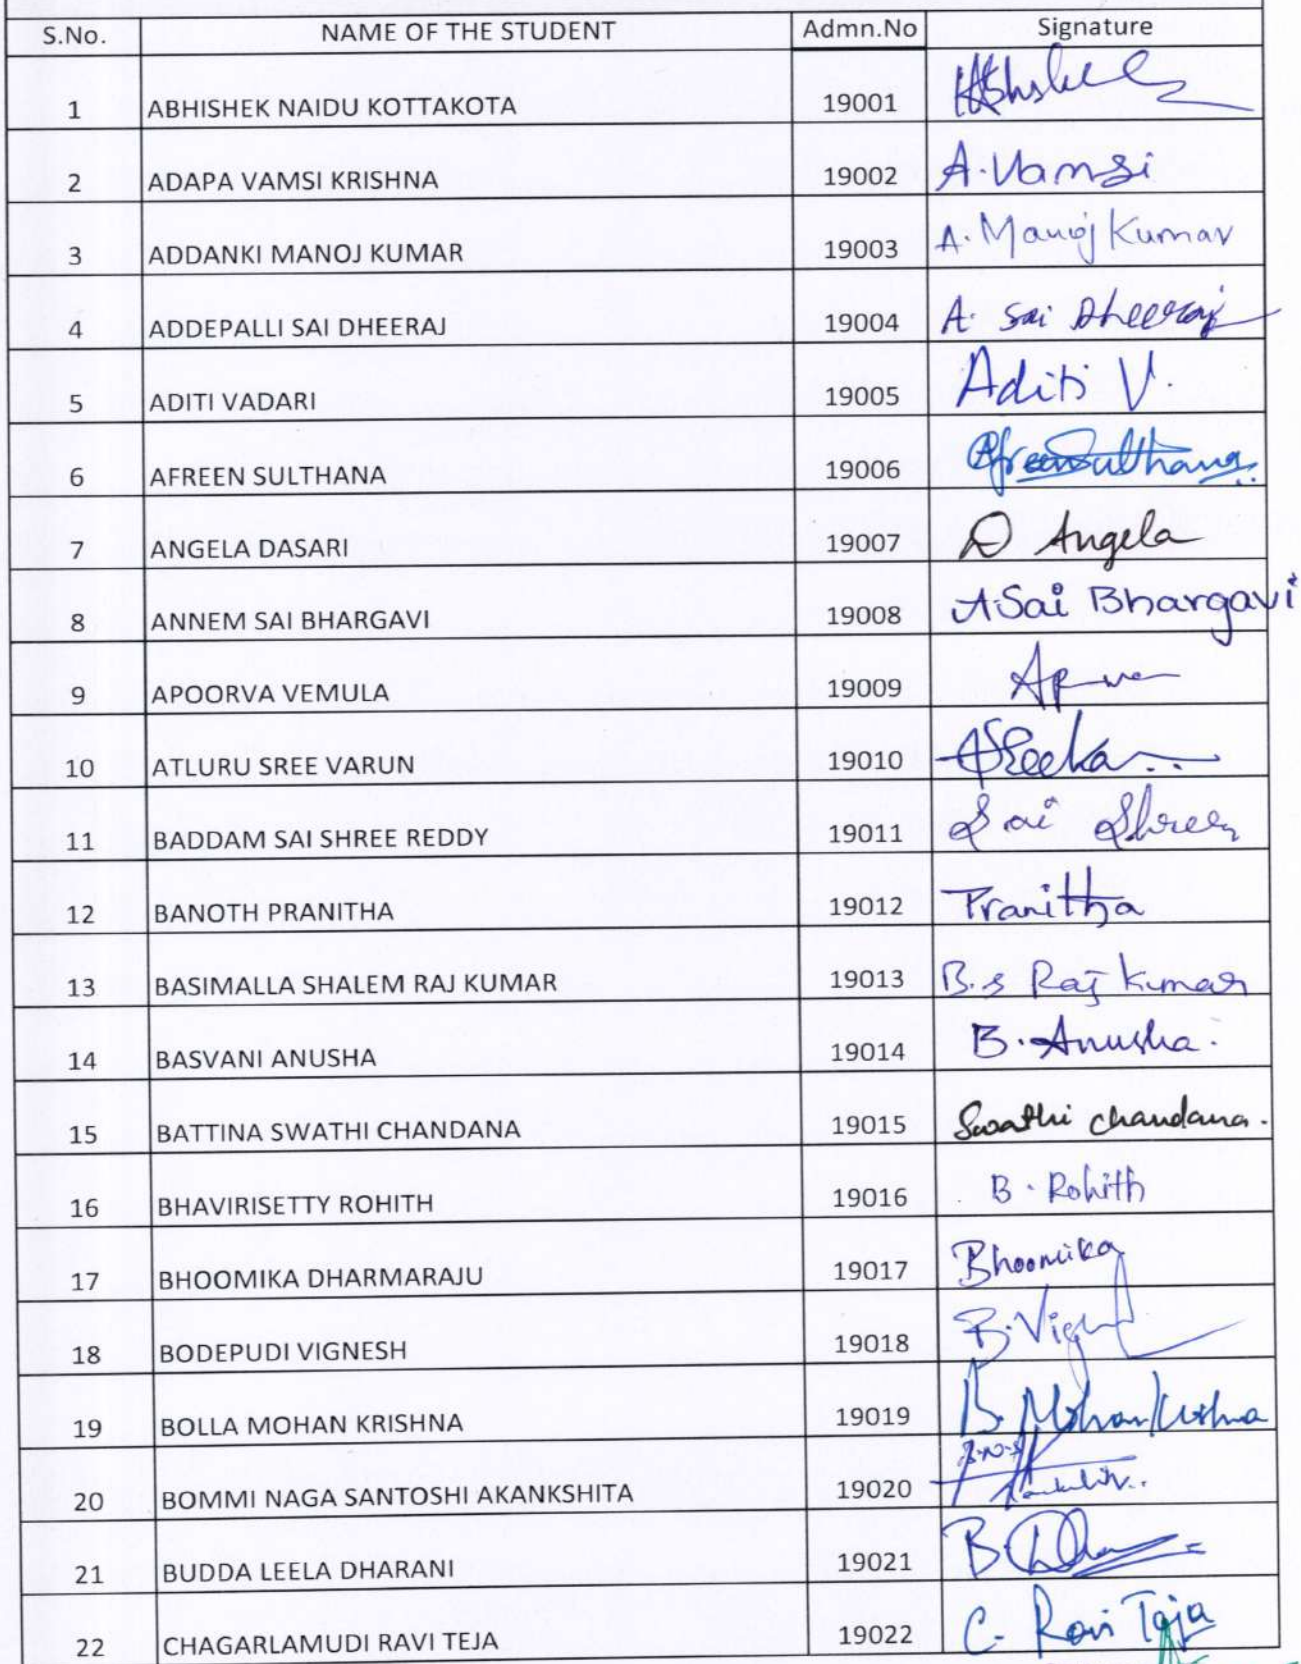 S.No. NAME OF THE STUDENT Admn.No Signature
1 ABHISHEK NAIDU KOTTAKOTA 19001
2 ADAPA VAMSI KRISHNA 19002 A.Vamsi
3 ADDANKI MANOJ KUMAR 19003 A. Manoj Kumar
4 ADDEPALLI SAI DHEERAJ 19004 A. Sai Dheeraj
5 ADITI VADARI 19005 Aditi V.
6 AFREEN SULTHANA 19006 Afreen Sulthana
7 ANGELA DASARI 19007 D Angela
8 ANNEM SAI BHARGAVI 19008 A.Sai Bhargavi
9 APOORVA VEMULA 19009
10 ATLURU SREE VARUN 19010
11 BADDAM SAI SHREE REDDY 19011 Sai Shree
12 BANOTH PRANITHA 19012 Pranitha
13 BASIMALLA SHALEM RAJ KUMAR 19013 B.s Raj Kumar
14 BASVANI ANUSHA 19014 B. Anusha.
15 BATTINA SWATHI CHANDANA 19015 Swathi chandana.
16 BHAVIRISETTY ROHITH 19016 B. Rohith
17 BHOOMIKA DHARMARAJU 19017 Bhoomika
18 BODEPUDI VIGNESH 19018
19 BOLLA MOHAN KRISHNA 19019 B. Mohan Krishna
20 BOMMI NAGA SANTOSHI AKANKSHITA 19020
21 BUDDA LEELA DHARANI 19021
22 CHAGARLAMUDI RAVI TEJA 19022 C. Ravi Teja